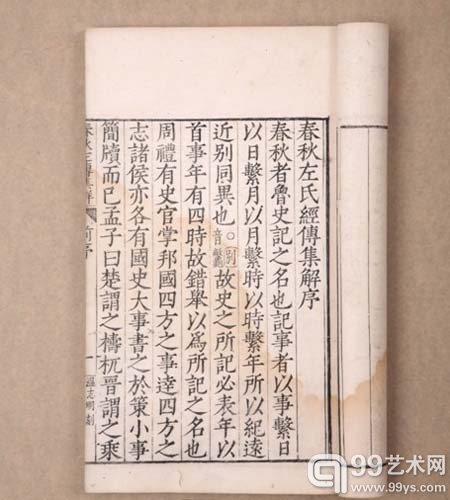 春秋左氏經傳集解序
春秋者魯史記之名也記事者以事繫日
以日繫月以月繫時以時繫年所以紀遠
近别同異也○故史之所記必表年以
首事年有四時故錯舉以爲所記之名也
周禮有史官掌邦國四方之事達四方之
志諸侯亦各有國史大事書之於策小事
簡牘而已孟子曰楚謂之檮杌晉謂之乘
春秋左傳 前序 一
99艺术网
www.99ys.com